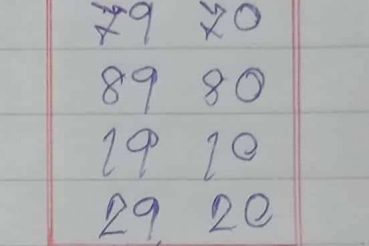 79 70
89 80
19 10
29 20